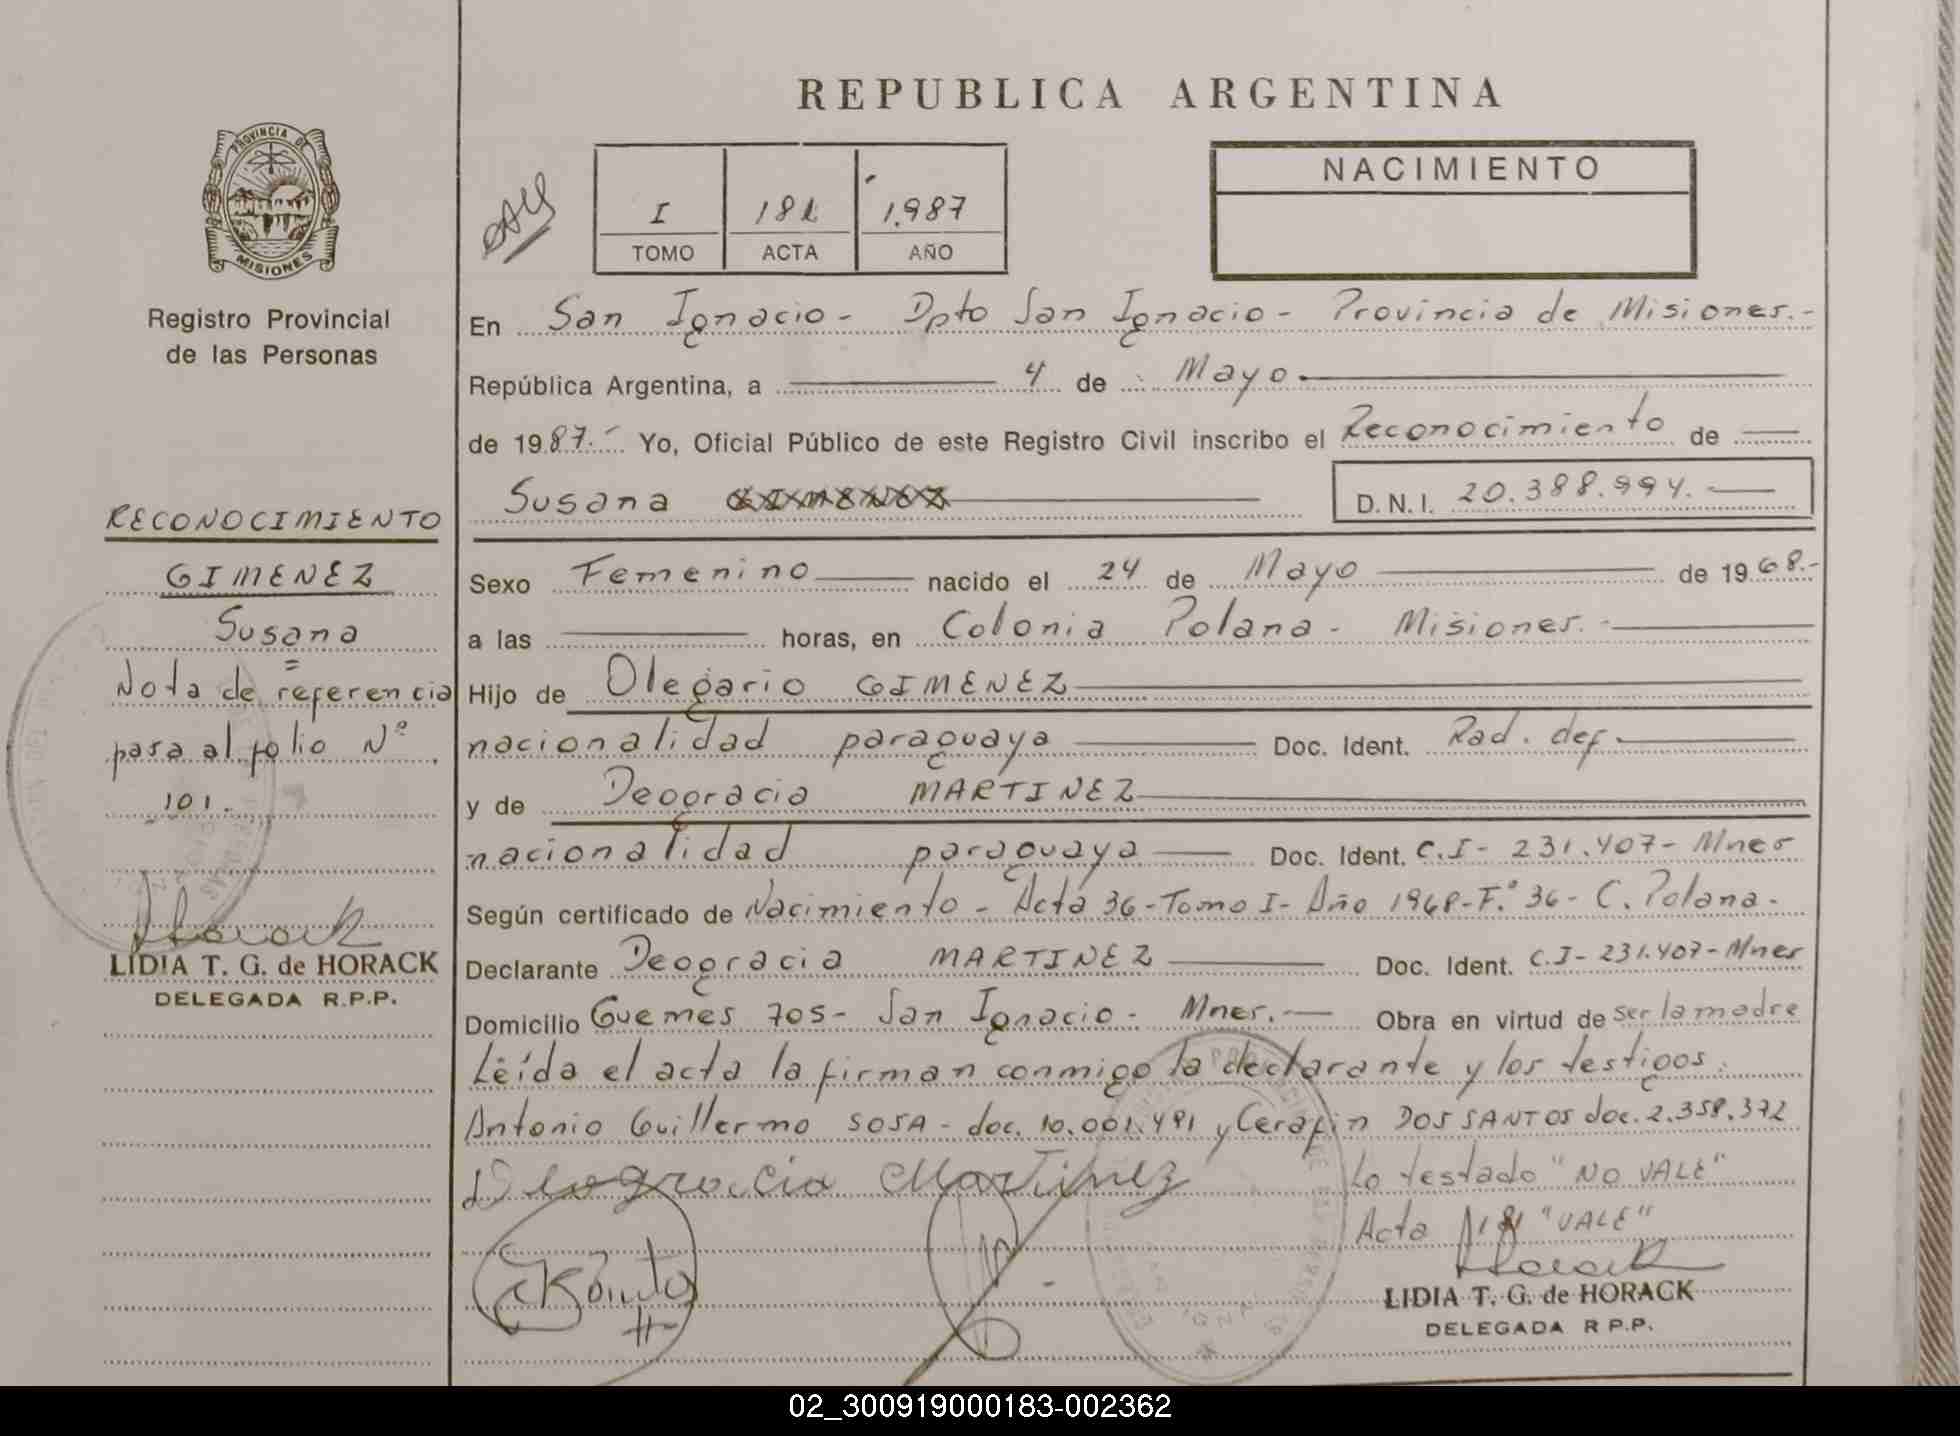 REPUBLICA ARGENTINA
PROVINCIA DE
MISIONES
Registro Provincial
de las Personas
I 181 1.987
TOMO ACTA AÑO
NACIMIENTO
En San Ignacio - Dpto San Ignacio - Provincia de Misiones.-
República Argentina, a 4 de Mayo
de 1987.- Yo, Oficial Público de este Registro Civil inscribo el Reconocimiento de
Susana GIMENEZ
D.N.I. 20.388.994.
RECONOCIMIENTO
GIMENEZ
Susana
=
Nota de referencia
pasa al folio Nº
101.
LIDIA T. G. de HORACK
DELEGADA R.P.P.
Sexo Femenino nacido el 24 de Mayo de 1968.-
a las horas, en Colonia Polana - Misiones.-
Hijo de Olegario GIMENEZ
nacionalidad paraguaya Doc. Ident. Rad. def.
y de Deogracia MARTINEZ
nacionalidad paraguaya Doc. Ident. C.I - 231.407 - Mnes
Según certificado de Nacimiento - Acta 36 - Tomo I - Año 1968 - F.º 36 - C. Polana.-
Declarante Deogracia MARTINEZ Doc. Ident. C.I - 231.407 - Mnes
Domicilio Guemes 705 - San Ignacio - Mnes.- Obra en virtud de ser la madre
Leída el acta la firman conmigo la declarante y los testigos:
Antonio Guillermo SOSA - doc. 10.001.491 y Cerafin DOS SANTOS doc. 2.358.372
Deogracia Martinez
Lo testado "NO VALE"
Acta 181 "VALE"
LIDIA T. G. de HORACK
DELEGADA R P.P.
02_300919000183-002362